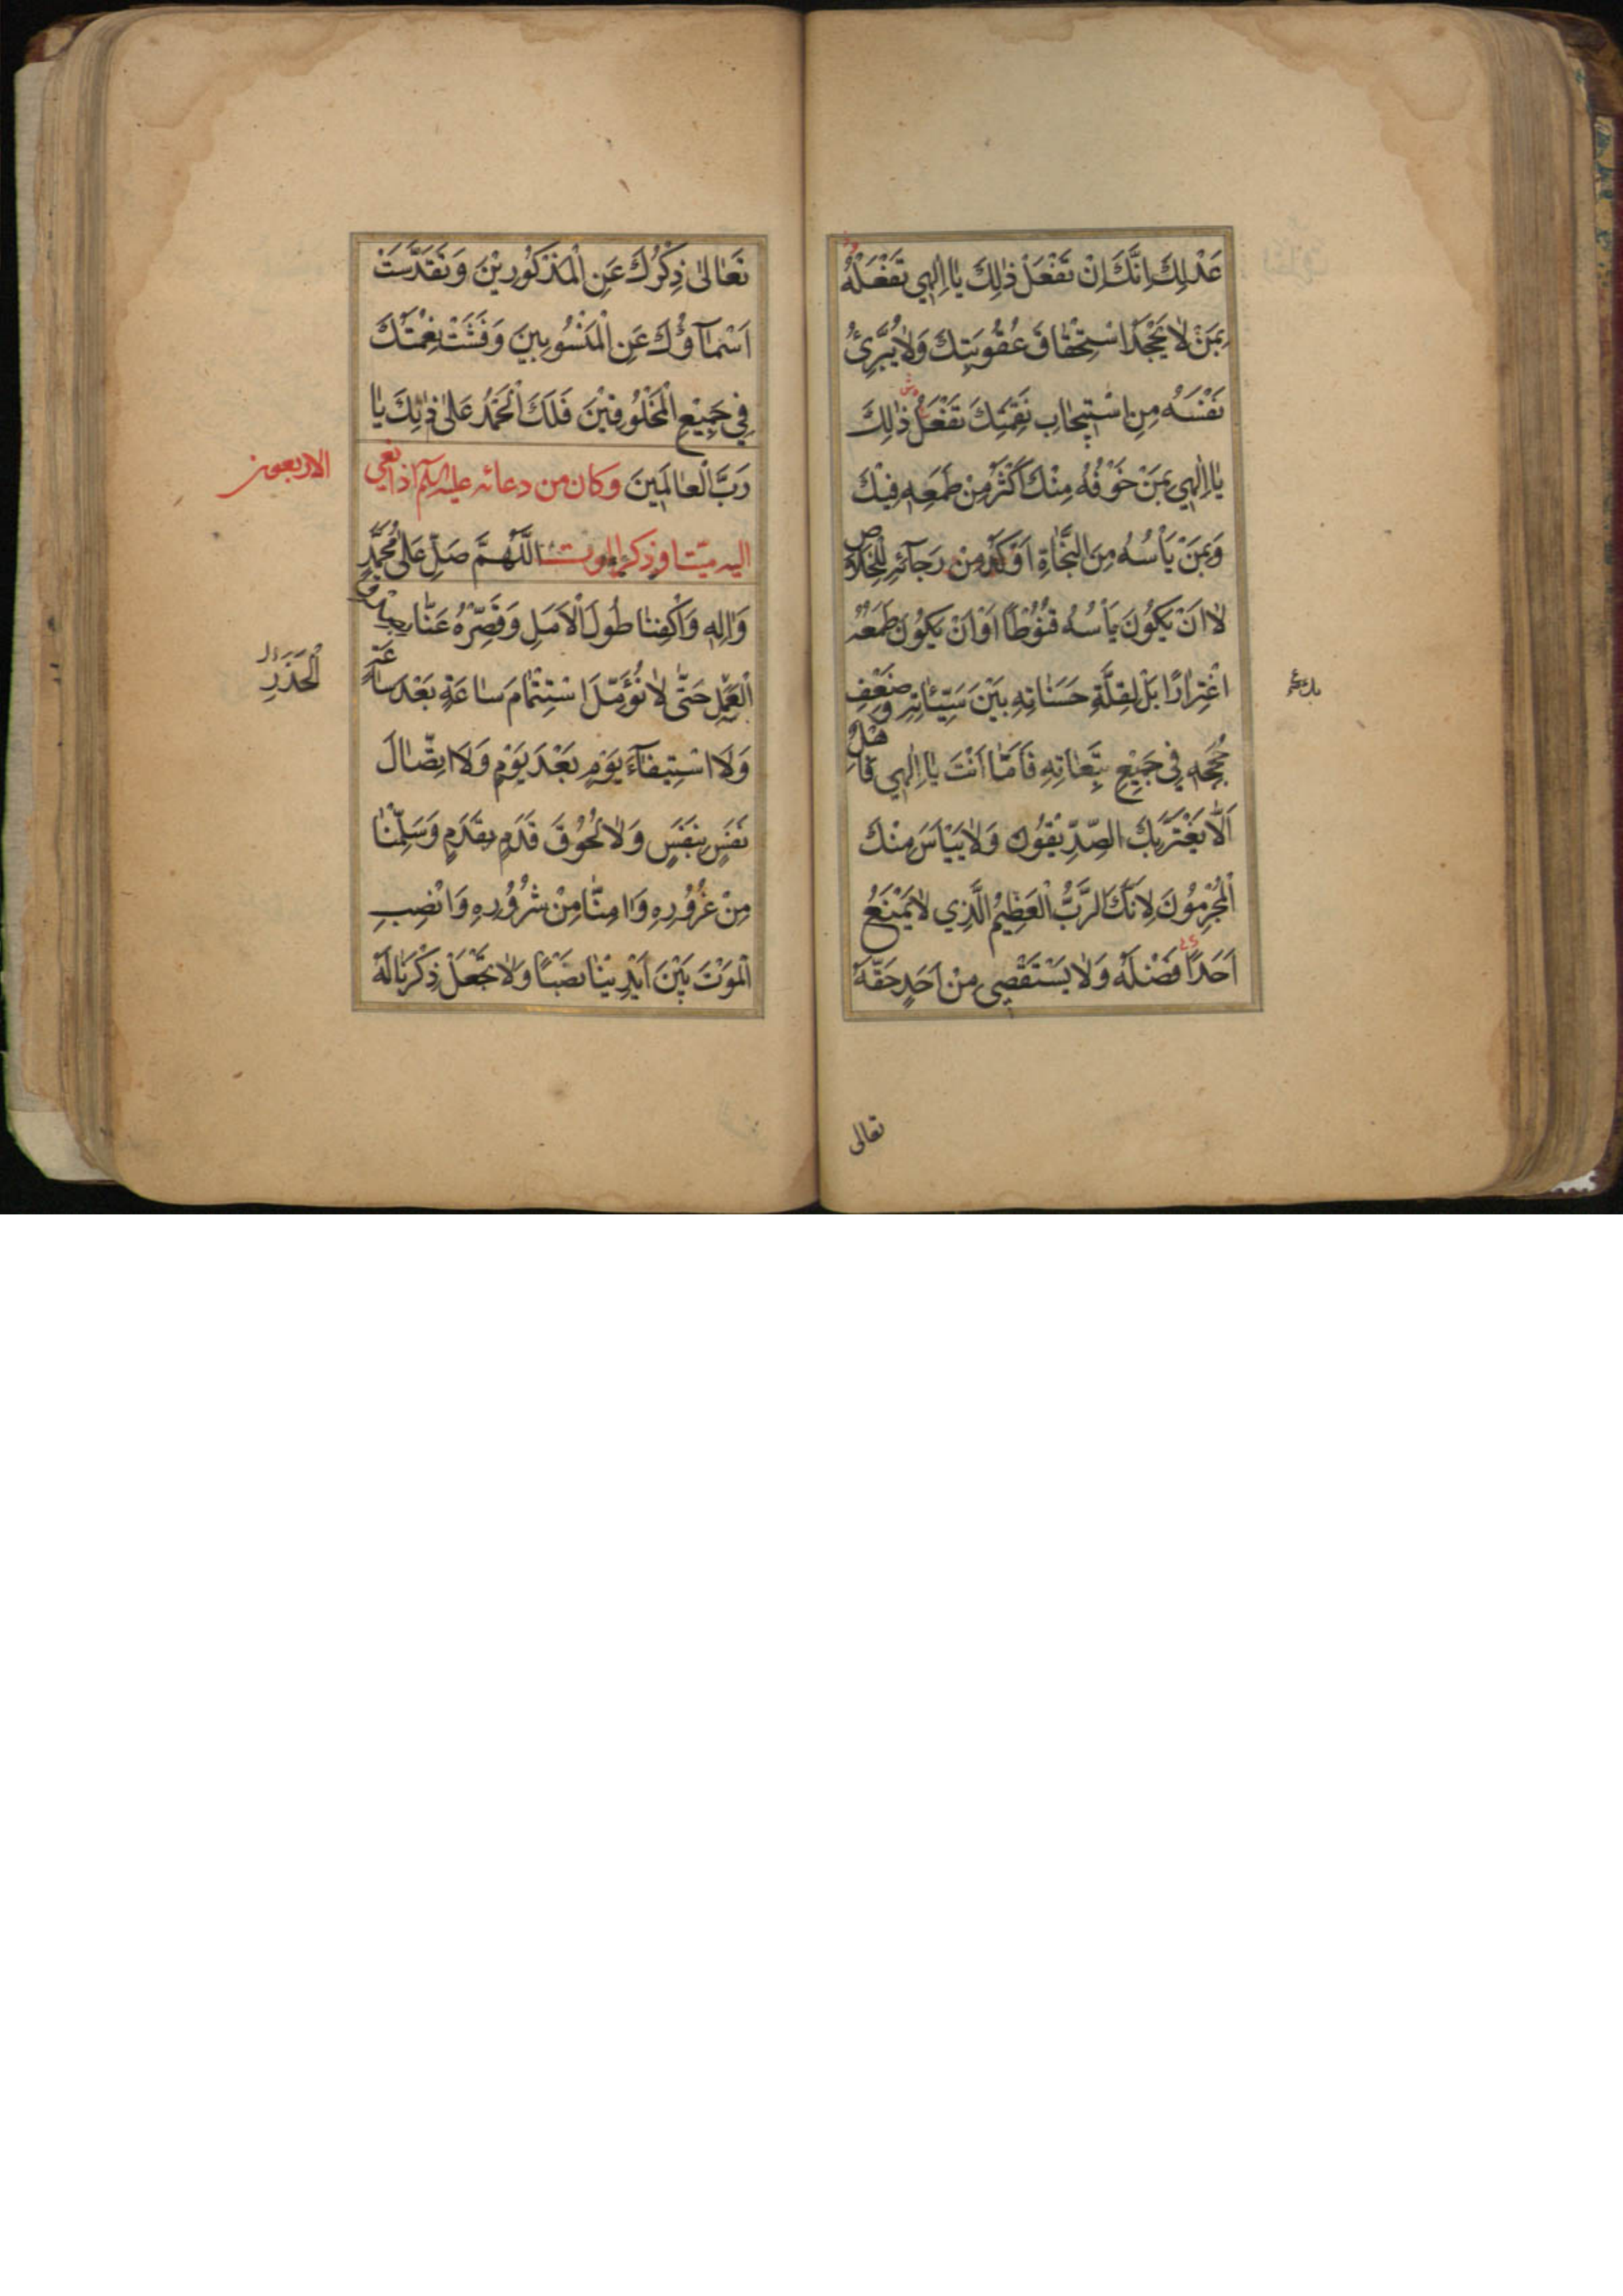 عَدْلِكَ اِنَّكَ اِنْ تَفْعَلْ ذٰلِكَ يٰا اِلٰهِي تَفْعَلْهُ
بِمَنْ لٰا يَجْحَدُ اسْتِحْقٰاقَ عُقُوبَتِكَ وَلٰا يُبَرِّئُ
نَفْسَهُ مِنِ اسْتِيجٰابِ نَقِمَتِكَ تَفْعَلُ ذٰلِكَ
يٰا اِلٰهِي بِمَنْ خَوْفُهُ مِنْكَ اَكْثَرُ مِنْ طَمَعِهِ فِيْكَ
وَبِمَنْ يَأْسُهُ مِنَ النَّجٰاةِ اَوْكَدُ مِنْ رَجٰآئِهِ لِلْخَلاٰصِ
لٰا اَنْ يَكُوُنَ يَأْسُهُ قُنُوُطًا اَوْ اَنْ يَكُوُنَ طَمَعُهُ
اغْتِرٰارًا بَلْ لِقِلَّةِ حَسَنٰاتِهِ بَيْنَ سَيِّئٰاتِهِ وَضَعْفِ
حُجَجِهِ فِي جَمِيْعِ تَبِعٰاتِهِ فَاَمّٰا اَنْتَ يٰا اِلٰهِي فَاَهْلٌ
اَلّٰا يَغْتَرَّ بِكَ الصِّدِّيْقُوُنَ وَلٰا يَيْاَسَ مِنْكَ
الْمُجْرِمُوُنَ لِاَنَّكَ الرَّبُّ الْعَظِيْمُ الَّذِي لٰا يَمْنَعُ
اَحَدًا فَضْلَهُ وَلٰا يَسْتَقْصِي مِنْ اَحَدٍ حَقَّهُ
تعالى
تَعٰالىٰ ذِكْرُكَ عَنِ الْمَذْكُوُرِيْنَ وَتَقَدَّسَتْ
اَسْمٰآؤُكَ عَنِ الْمَنْسُوبِيْنَ وَفَشَتْ نِعْمَتُكَ
فِي جَمِيْعِ الْمَخْلُوُقِيْنَ فَلَكَ الْحَمْدُ عَلىٰ ذٰلِكَ يٰا
رَبَّ الْعٰالَمِينَ وكان من دعائه عليه السلم اذا نعي
الاربعون
اليه ميت او ذكر الموت اَللّٰهُمَّ صَلِّ عَلىٰ مُحَمَّدٍ
وَاٰلِهِ وَاكْفِنٰا طُوُلَ الْاَمَلِ وَقَصِّرْهُ عَنّٰا بِصِدْقِ
الْعَمَلِ حَتّٰى لٰا نُؤَمِّلَ اسْتِتْمٰامَ سٰاعَةٍ بَعْدَ سٰاعَةٍ
وَلَا اسْتِيفٰآءَ يَوْمٍ بَعْدَ يَوْمٍ وَلَا اتِّصٰالَ
نَفَسٍ بِنَفَسٍ وَلٰا لُحُوُقَ قَدَمٍ بِقَدَمٍ وَسَلِّمْنٰا
مِنْ غُرُوُرِهِ وَاٰمِنّٰا مِنْ شُرُوُرِهِ وَانْصِبِ
الْمَوْتَ بَيْنَ اَيْدِيْنٰا نَصْبًا وَلٰا تَجْعَلْ ذِكْرَنٰا لَهُ